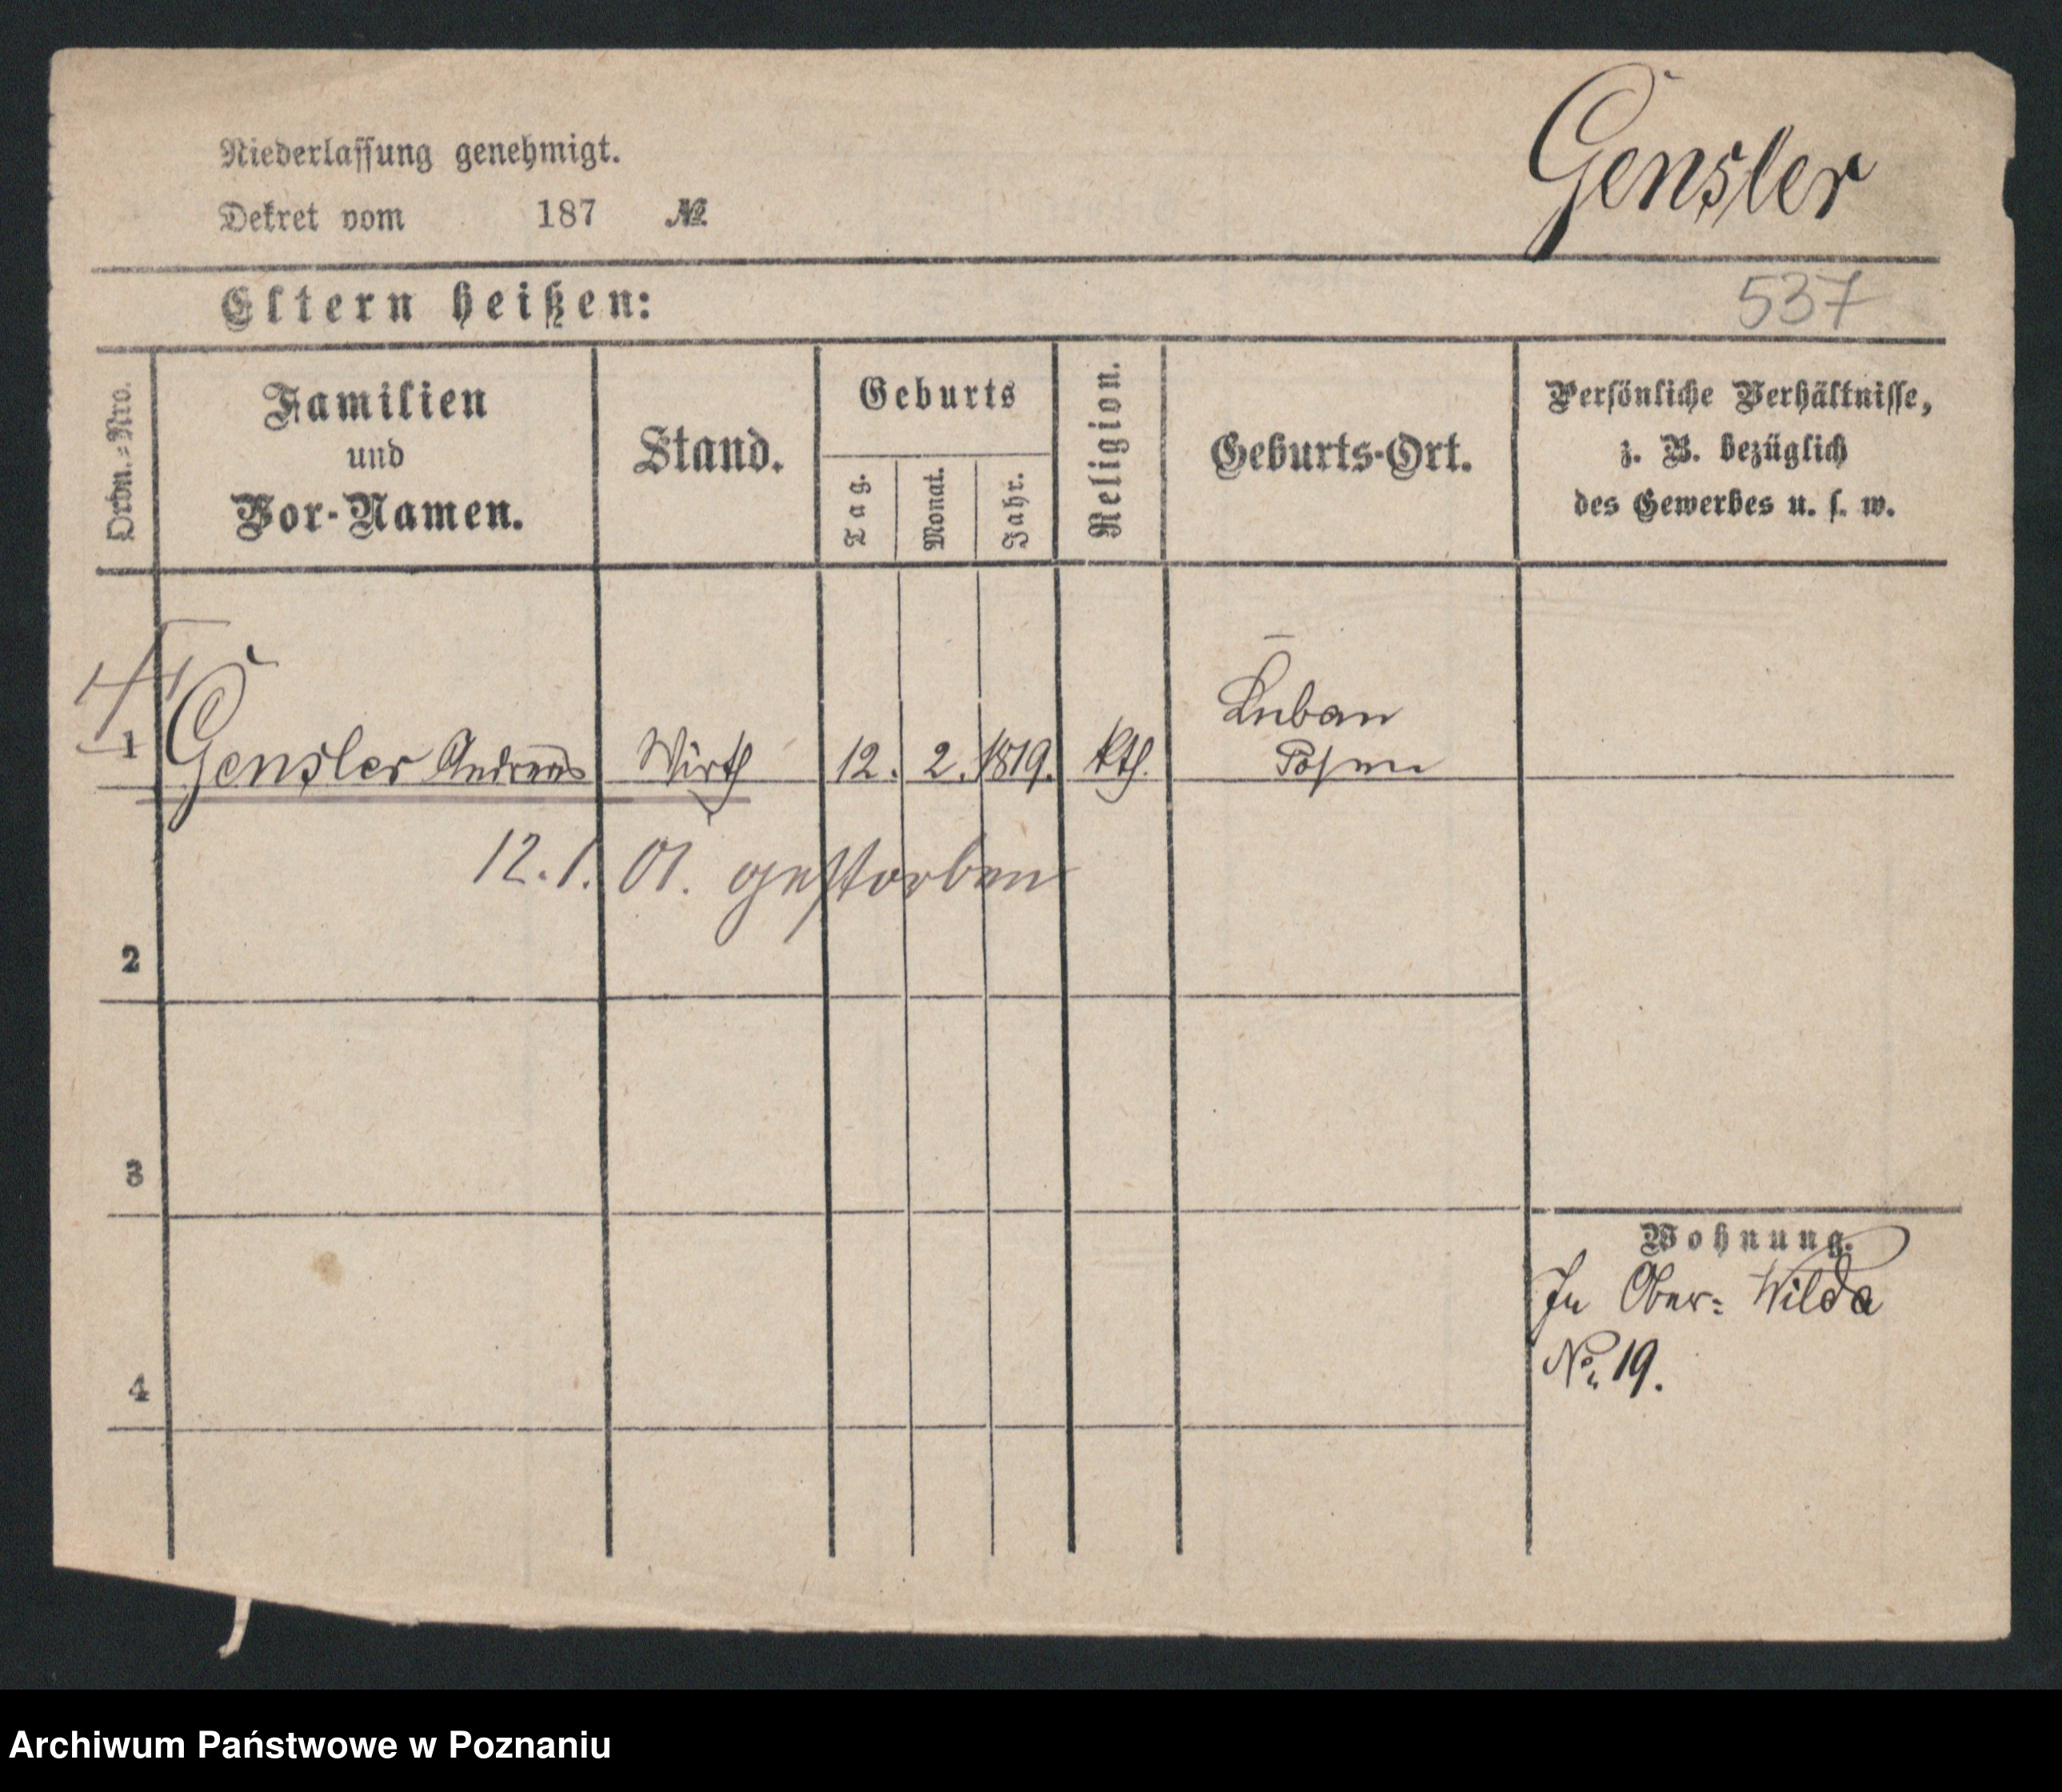 Niederlassung genehmigt.
Dekret vom 187 №
Gensler
Eltern heißen:
537
Ordn.-Nro.
Familien
und
Vor-Namen.
Stand.
Geburts
Tag.
Monat.
Jahr.
Religion.
Geburts-Ort.
Persönliche Verhältnisse,
z. B. bezüglich
des Gewerbes u. s. w.
1 Gensler Andreas Wirth 12. 2. 1819. kth. Luban
Posen
12.1.01. gestorben
2
3
Wohnung.
In Ober: Wilda
No. 19.
4
Archiwum Państwowe w Poznaniu